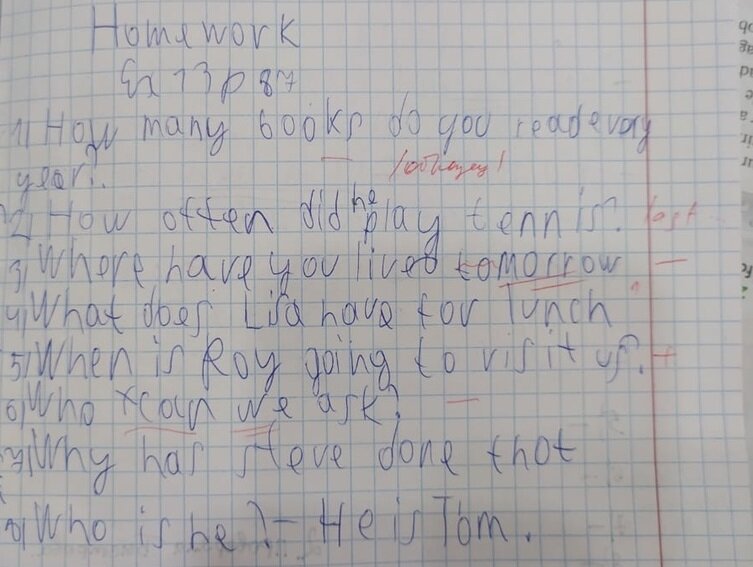 Homework
Ex 13 p 87
1) How many books do you read every
year?
2) How often did he play tennis? last
3) Where have you lived tomorrow
4) What does Lisa have for lunch
5) When is Roy going to visit us? +
6) Who can we ask?
7) Why has steve done that
8) Who is he? - He is Tom.